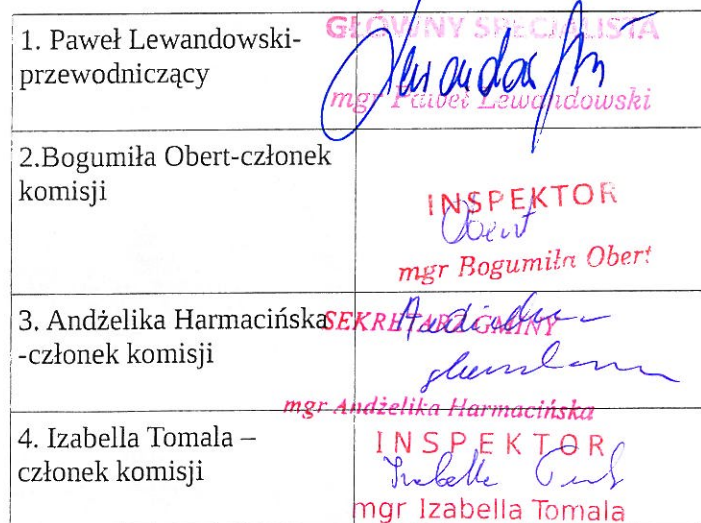 1. Paweł Lewandowski-
przewodniczący
GŁÓWNY SPECJALISTA
Lewandowski
mgr Paweł Lewandowski
2.Bogumiła Obert-członek
komisji
INSPEKTOR
Obert
mgr Bogumiła Obert
3. Andżelika Harmacińska
-członek komisji
SEKRETARZ GMINY
mgr Andżelika Harmacińska
4. Izabella Tomala –
członek komisji
INSPEKTOR
Izabella
mgr Izabella Tomala